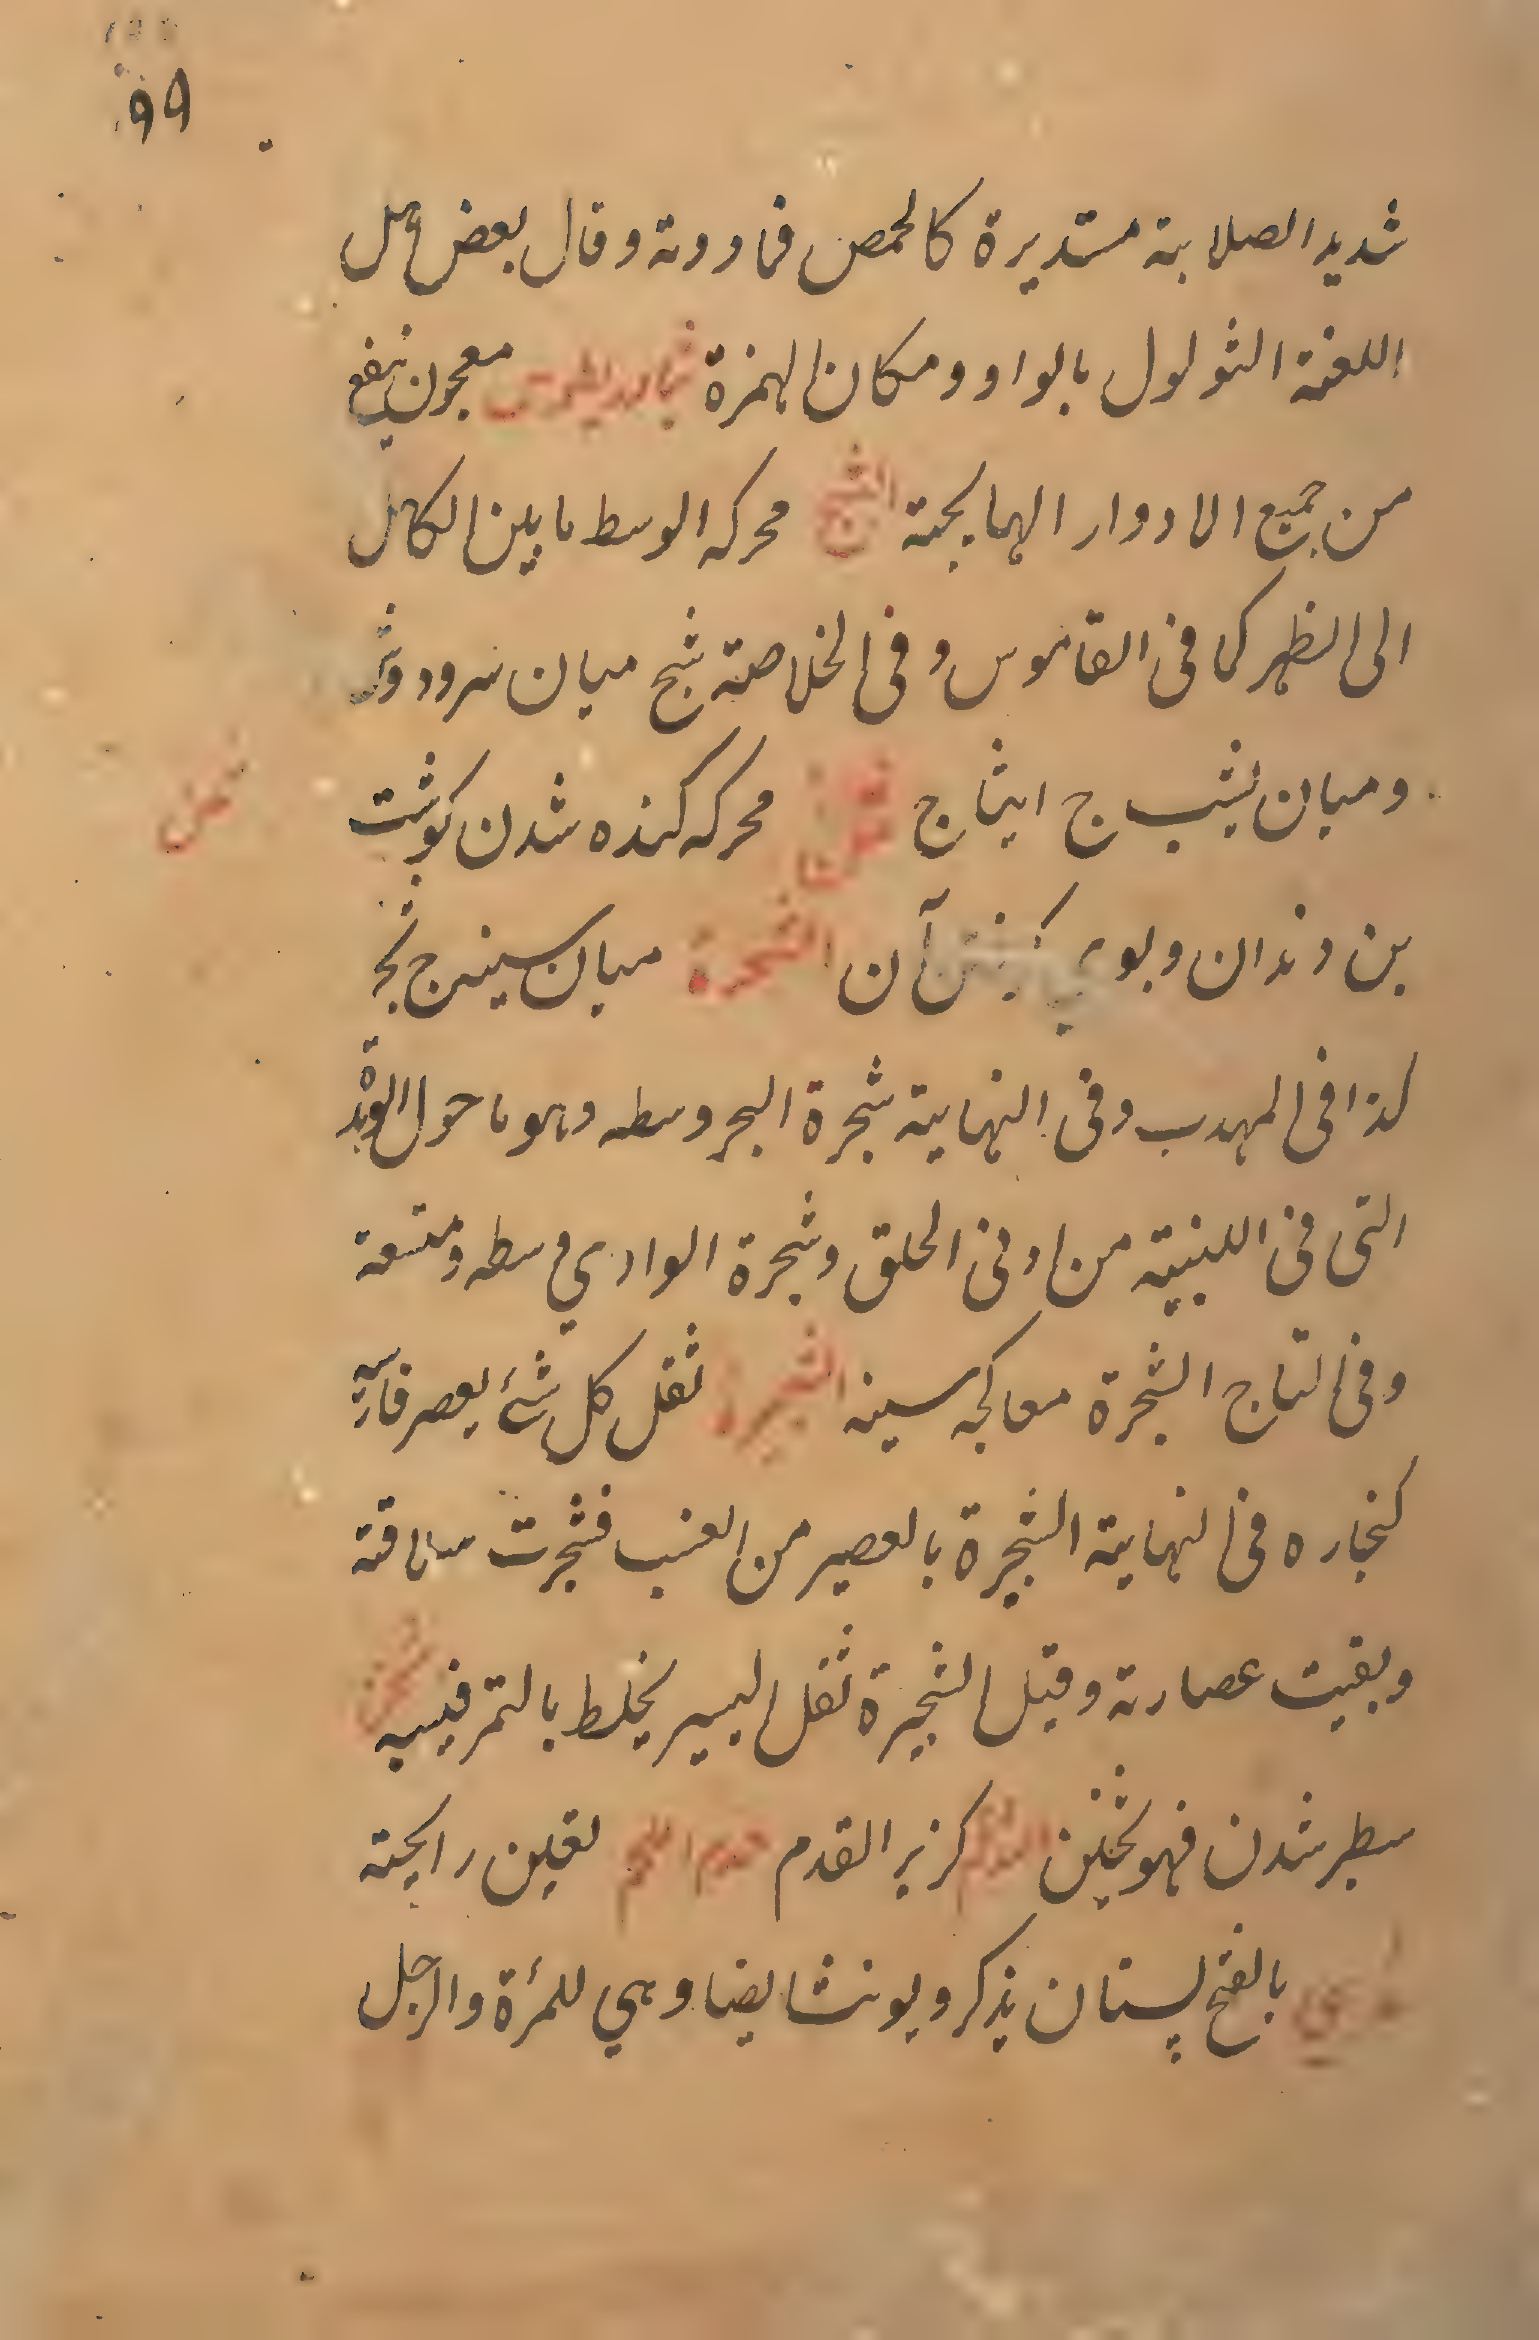 ٩٩
شديد الصلابة مستديرة كالحمص فما دونه وقال بعض اهل
اللغة الثولول بالواو ومكان الهمزة معجون ينفع
من جميع الادوار الهايجة الثبج محركه الوسط ما بين الكاهل
الى الظهر كما فى القاموس وفى الخلاصة ثبج ميان سرودوش
وميان پشت ج اثباج محركه كنده شدن كوشت
بن دندان وبوى آن الثجرة ميان سينه ج ثجر
كذا فى المهذب وفى النهاية ثجرة البحر وسطه وهو ما حول الوهدة
التى فى اللبة من ادنى الحلق وثجرة الوادي وسطه ومتسعه
وفى التاج الثجرة معاكچه سينه الثجير ثفل كل شئ يعصر فارسيه
كنجاره فى النهاية الثجيرة بالعصير من العنب فثجرت سلافته
وبقيت عصارته وقيل الثجيرة ثفل البسير يخلط بالتمر فينبذ ثخن
سطبر شدن فهو ثخين كزبر القدم يقين رايحته
ثدي بالفتح پستان يذكر ويونث ايضا وهي للمرٔة والرجل